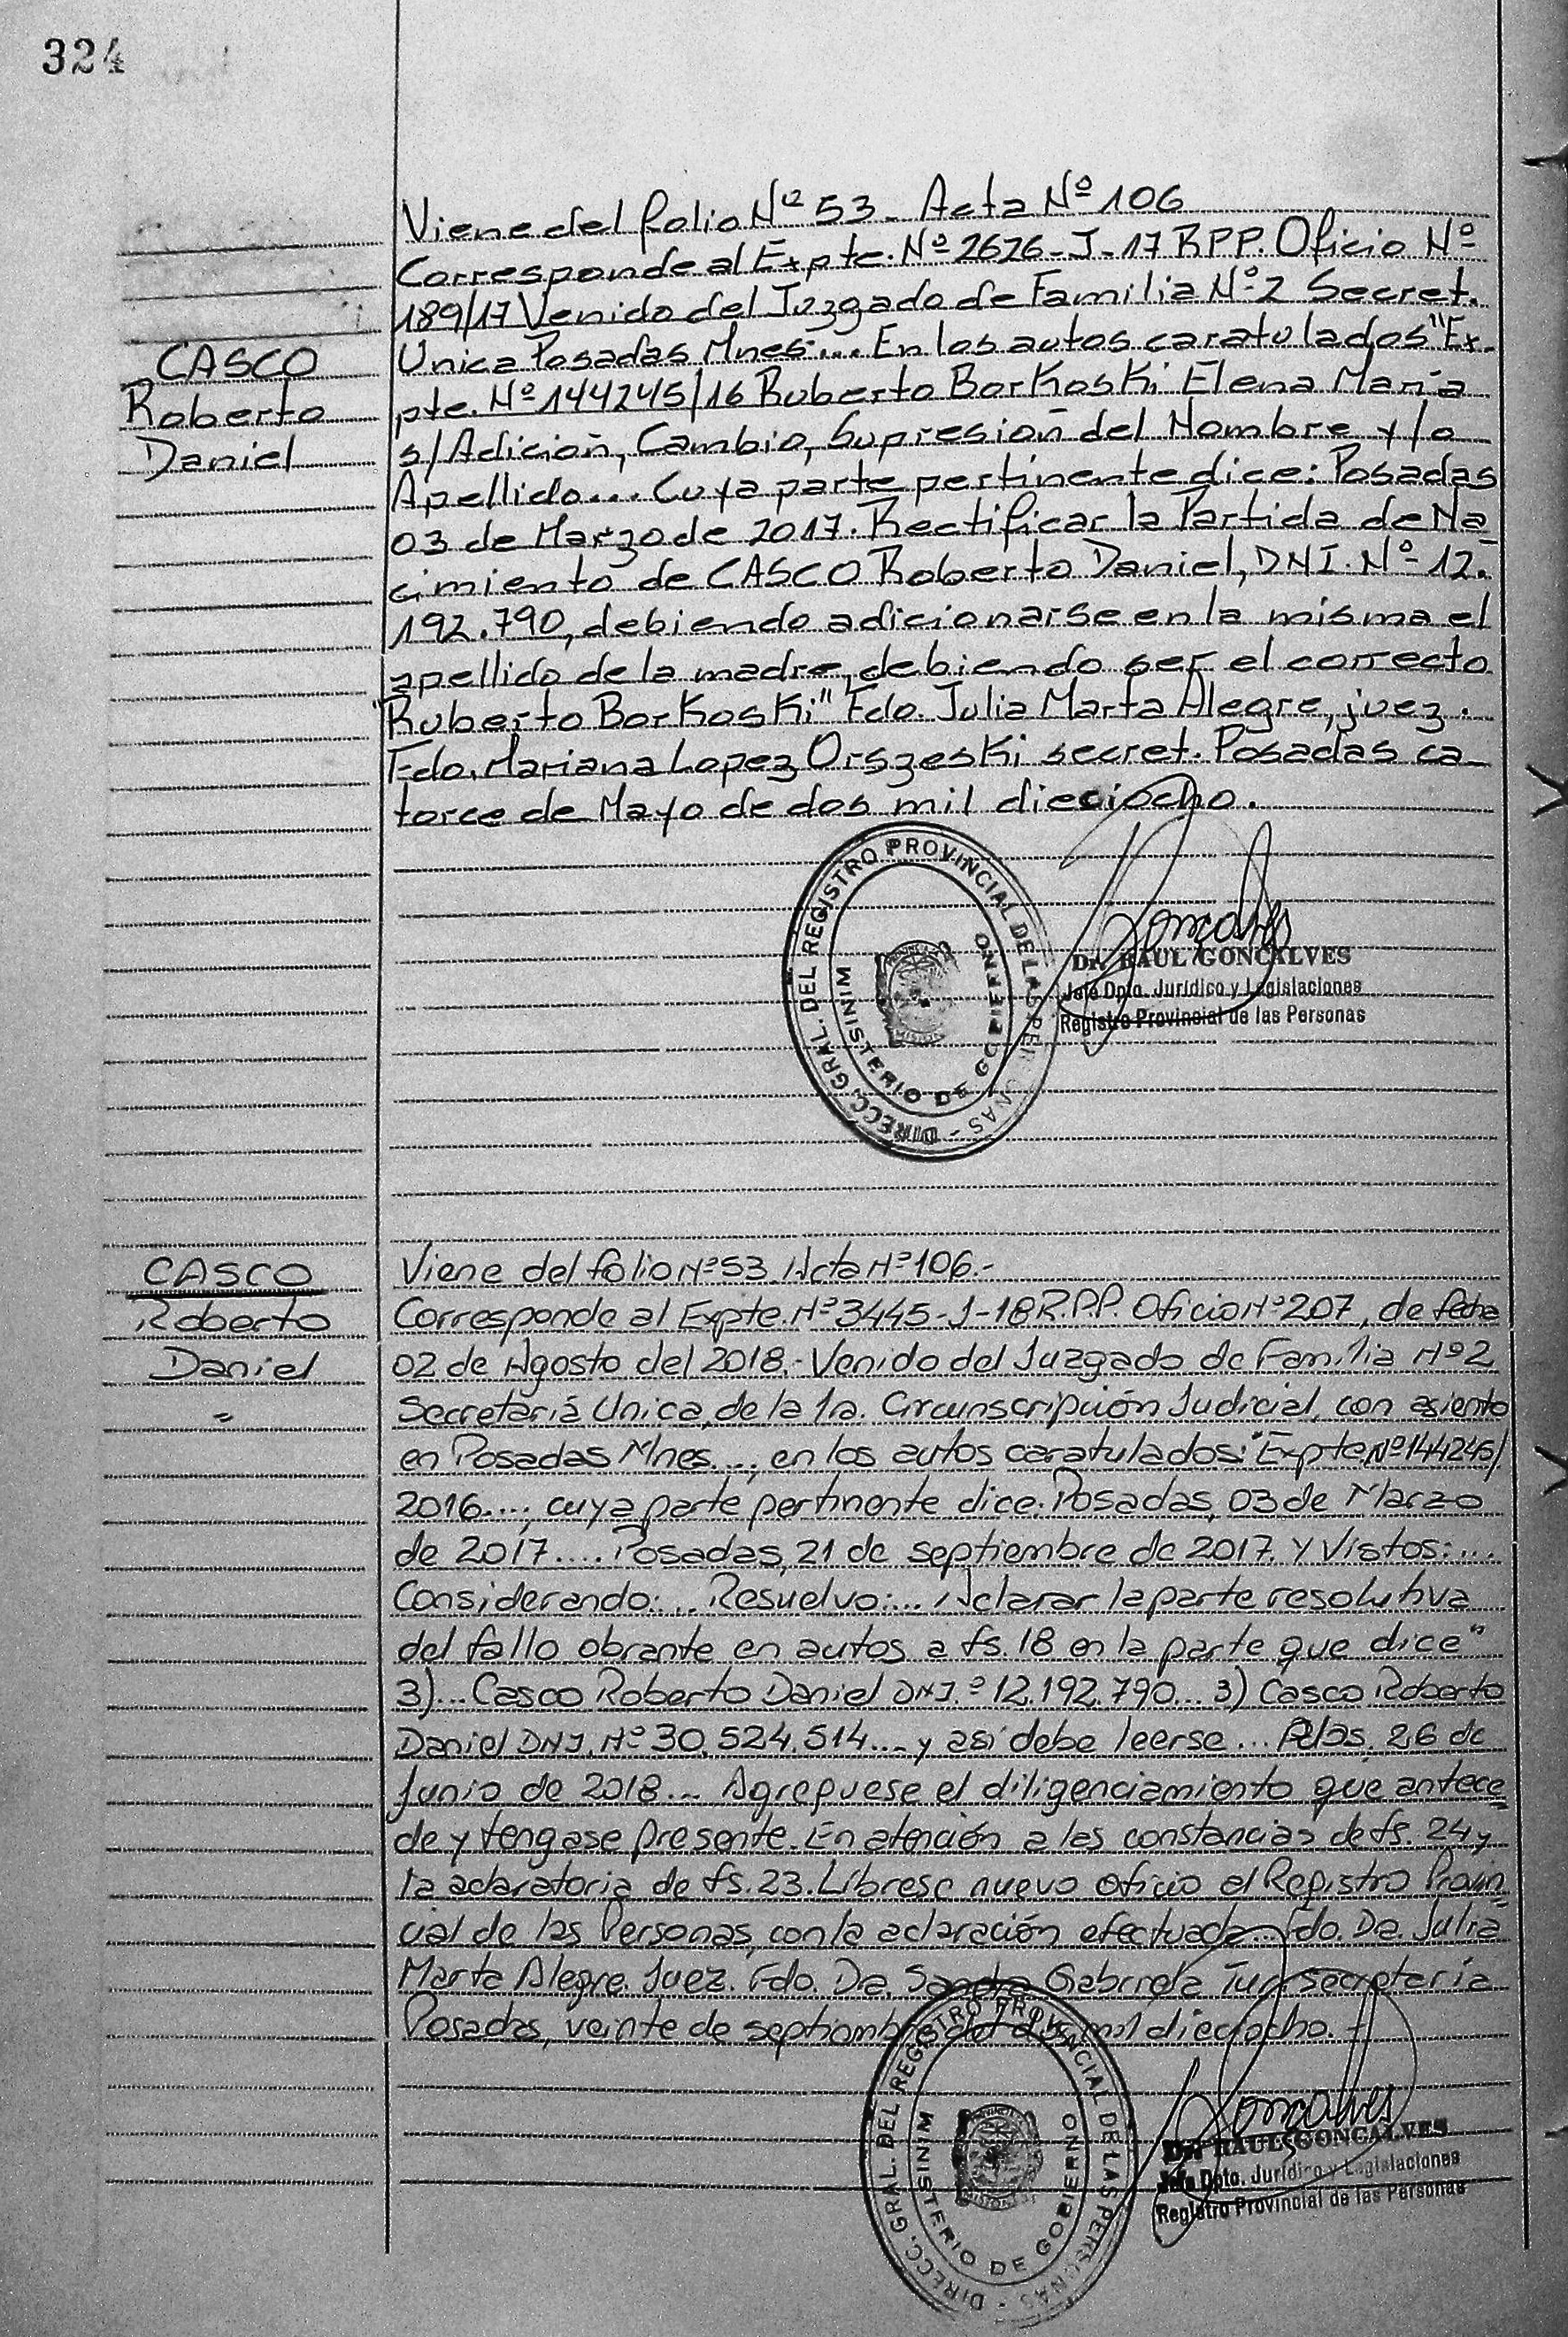 324
Viene del folio Nº 53_ Acta Nº 106
Corresponde al Expte. Nº 2626-J-17 RPP. Oficio Nº
189/17 Venido del Juzgado de Familia Nº 2 Secret.
Unica Posadas Mnes.... En los autos caratulados "Ex-
pte. Nº 144245/16 Ruberto Borkoski Elena María
s/Adición, Cambio, Supresión del Nombre y/o
Apellido... Cuya parte pertinente dice: Posadas
03 de Marzo de 2017. Rectificar la Partida de Na-
cimiento de CASCO Roberto Daniel, DNI. Nº 12.
192.790, debiendo adicionarse en la misma el
apellido de la madre, debiendo ser el correcto
"Ruberto Borkoski" Fdo. Julia Marta Alegre, juez.
Fdo. Mariana Lopez Orszeski secret. Posadas ca-
torce de Mayo de dos mil dieciocho.
CASCO
Roberto
Daniel
DIRECC. GRAL. DEL REGISTRO PROVINCIAL DE LAS PERSONAS -
MINISTERIO DE GOBIERNO
Goncalves
Dr. RAUL GONCALVES
Jefe Dpto. Jurídico y Legislaciones
Registro Provincial de las Personas
CASCO
Roberto
Daniel
=
Viene del folio Nº 53 Acta Nº 106.-
Corresponde al Expte. Nº 3445-J-18 R.P.P. Oficio Nº 207, de fecha
02 de Agosto del 2018.- Venido del Juzgado de Familia Nº 2
Secretaría Unica, de la 1a. Circunscripción Judicial, con asiento
en Posadas Mnes...., en los autos caratulados: "Expte. Nº 144245/
2016...., cuya parte pertinente dice: Posadas, 03 de Marzo
de 2017.... Posadas, 21 de septiembre de 2017. Y Vistos:...
Considerando:... Resuelvo:... Aclarar la parte resolutiva
del fallo obrante en autos a fs. 18 en la parte que dice"
3)... Casco Roberto Daniel DNI.º 12.192.790... 3) Casco Roberto
Daniel DNI. Nº 30.524.514.... y así debe leerse... Pdas, 26 de
Junio de 2018... Agreguese el diligenciamiento que antece-
de y tengase presente. En atención a las constancias de fs. 24 y
la aclaratoria de fs. 23. Librese nuevo oficio al Registro Provin-
cial de las Personas, con la aclaración efectuada... Fdo. Da. Julia
Marta Alegre. Juez. Fdo. Da. Sandra Gabriela Tur, secretaria
Posadas, veinte de septiembre del dos mil dieciocho. -
DIRECC. GRAL. DEL REGISTRO PROVINCIAL DE LAS PERSONAS -
MINISTERIO DE GOBIERNO
Goncalves
Dr. RAUL GONCALVES
Jefe Dpto. Jurídico y Legislaciones
Registro Provincial de las Personas